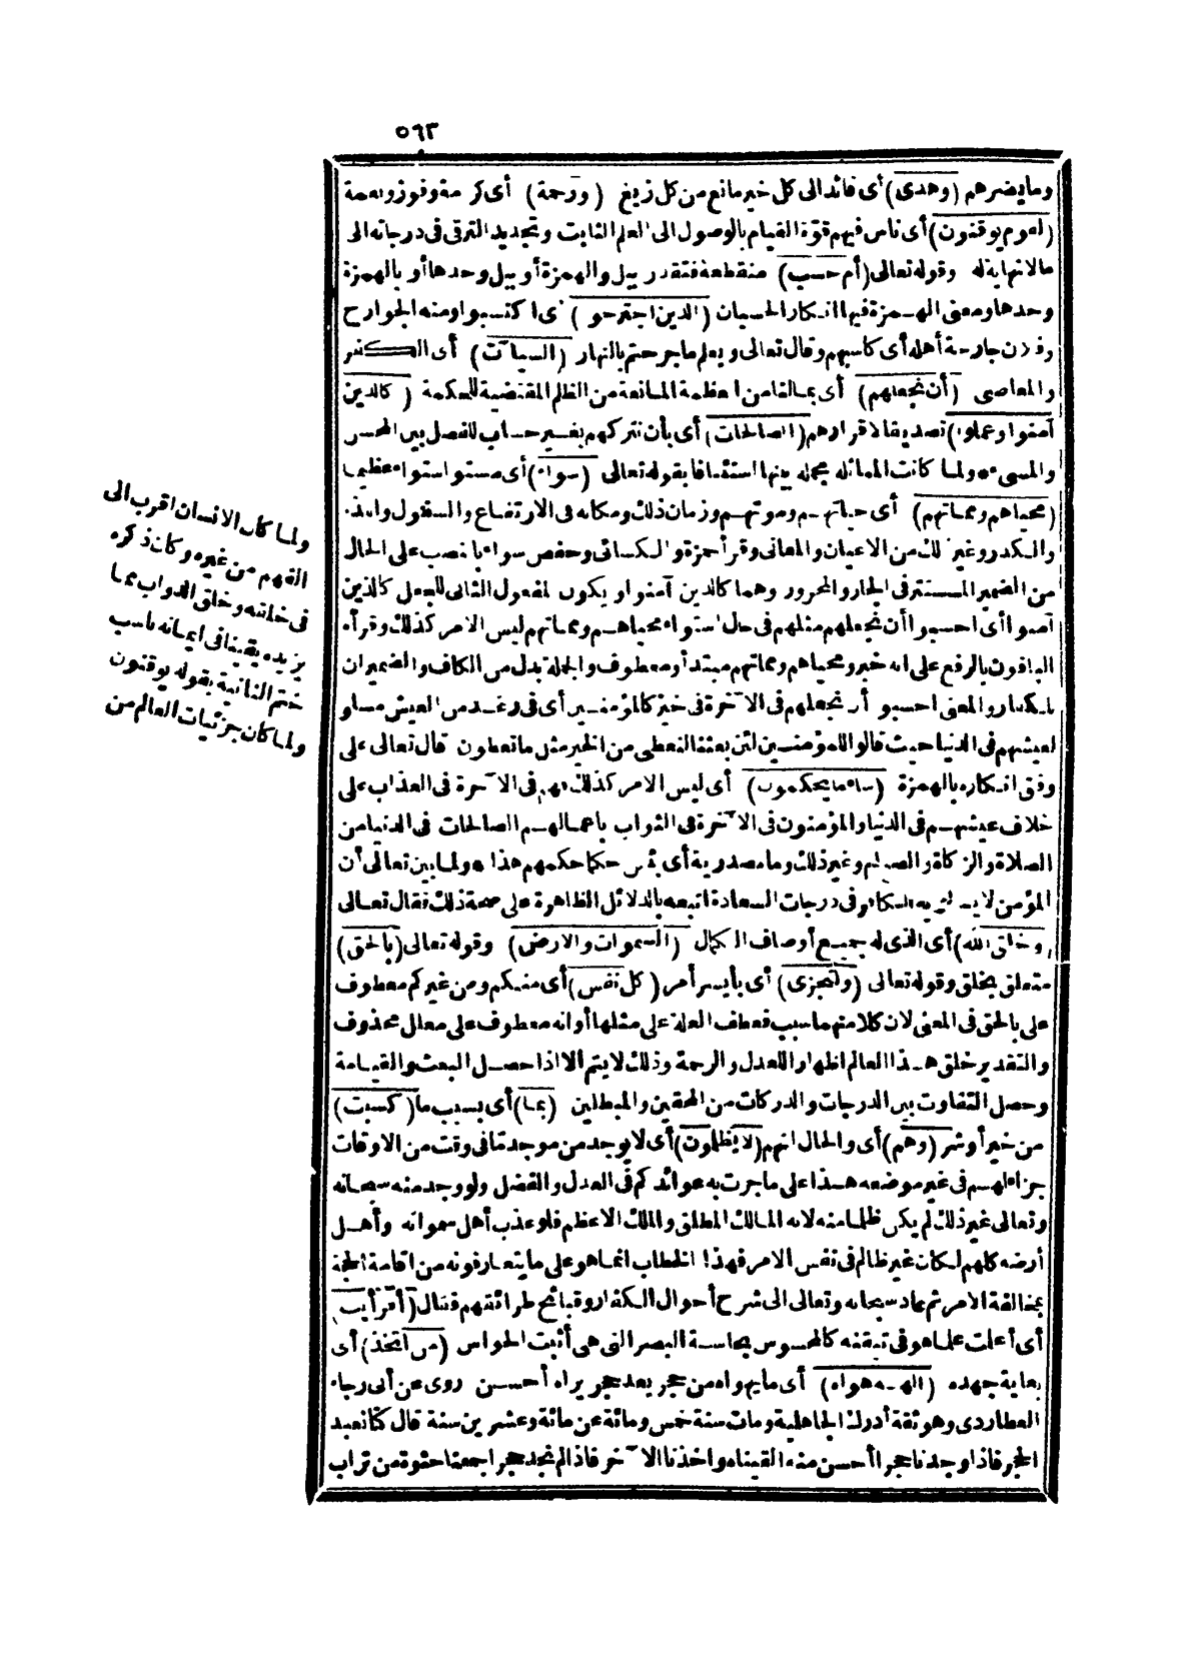 ٥٦٣
وما يضرهم (وهدى) أى قائد الى كل خير مانع من كل زيغ (ورحمة) أى كرامة وفوز ونعمة
(لقوم يوقنون) أى ناس فيهم قوّة القيام بالوصول الى العلم الثابت وتجديد الترقى فى درجاته الى
مالا نهاية له وقوله تعالى (أم حسب) منقطعة فتقدر ببل والهمزة أو ببل وحدها أو بالهمزة
وحدها ومعنى الهمزة فيها انكار الحسبان (الذين اجترحوا) أى اكتسبوا ومنه الجوارح
وفلان جارحة أهله أى كاسبهم وقال تعالى ويعلم ما جرحتم بالنهار (السيآت) أى الكفر
والمعاصى (أن نجعلهم) أى بمالنا من العظمة المانعة من الظلم المقتضية للحكمة (كالذين
آمنوا وعملوا) تصديقا لاقرارهم (الصالحات) أى بأن نتركهم بغير حساب للفصل بين المحسن
والمسىء ولما كانت المماثلة مجملة بينها استئنافا بقوله تعالى (سواء) أى مستو استواء عظيما
(محياهم ومماتهم) أى حياتهم وموتهم وزمان ذلك ومكانه فى الارتفاع والسفول واللذة
والكدر وغير ذلك من الاعيان والمعانى وقرأ حمزة والكسائى وحفص سواء بالنصب على الحال
من الضمير المستتر فى الجار والمجرور وهما كالذين آمنوا ويكون المفعول الثانى للجعل كالذين
آمنوا أى احسبوا أن نجعلهم مثلهم فى حال استواء محياهم ومماتهم ليس الامر كذلك وقرأه
الباقون بالرفع على انه خبر ومحياهم ومماتهم مبتدأ ومعطوف والجملة بدل من الكاف والضميران
للكفار والمعنى احسبوا أن نجعلهم فى الآخرة فى خير كالمؤمنين أى فى رغد من العيش مساو
لعيشهم فى الدنيا حيث قالوا للمؤمنين لئن بعثنا لنعطى من الخير مثل ما تعطون قال تعالى على
وفق انكاره بالهمزة (ساء ما يحكمون) أى ليس الامر كذلك فهم فى الآخرة فى العذاب على
خلاف عيشهم فى الدنيا والمؤمنون فى الآخرة فى الثواب باعمالهم الصالحات فى الدنيا من
الصلاة والزكاة والصيام وغير ذلك وما مصدرية أى بئس حكما حكمهم هذا * ولما بين تعالى أن
المؤمن لا يساويه الكافر فى درجات السعادة اتبعه بالدلائل الظاهرة على صحة ذلك فقال تعالى
(وخلق الله) أى الذى له جميع أوصاف الكمال (السموات والارض) وقوله تعالى (بالحق)
متعلق بخلق وقوله تعالى (ولتجزى) أى بأيسر أمر (كل نفس) أى منكم ومن غيركم معطوف
على بالحق فى المعنى لان كلا منهما سبب فعطف العلة على مثلها أو انه معطوف على معلل محذوف
والتقدير خلق هذا العالم اظهارا للعدل والرحمة وذلك لا يتم الا اذا حصل البعث والقيامة
وحصل التفاوت بين الدرجات والدركات من المحقين والمبطلين (بما) أى بسبب ما (كسبت)
من خير أو شر (وهم) أى والحال انهم (لا يظلمون) أى لا يوجد من موجد تما فى وقت من الاوقات
جزاء لهم فى غير موضعه هذا على ما جرت به عوائدكم فى العدل والفضل ولو وجد منه سبحانه
وتعالى غير ذلك لم يكن ظلما منه لانه المالك المطلق والملك الاعظم فلو عذب أهل سمواته وأهل
أرضه كلهم لكان غير ظالم فى نفس الامر فهذا الخطاب انما هو على ما يتعارفونه من اقامة الحجة
بمخالفة الامر ثم عاد سبحانه وتعالى الى شرح أحوال الكفار وقبائح طرائقهم فقال (أفرأيت)
أى أعلمت علما هو فى تيقنه كالمحسوس بحاسة البصر التى هى أثبت الحواس (من اتخذ) أى
بغاية جهده (الهه هواه) أى ما يهواه من حجر بعد حجر يراه أحسن روى عن أبى رجاء
العطاردى وهو ثقة أدرك الجاهلية ومات سنة خمس ومائة عن مائة وعشرين سنة قال كنا نعبد
الحجر فاذا وجدنا حجرا أحسن منه القيناه واخذنا الآخر فاذا لم نجد حجرا جمعنا حثوة من تراب
ولما كان الانسان اقرب الى
الفهم من غيره وكان ذكره
فى خلقته وخلق الدواب مما
يزيده يقينا فى ايمانه ناسب
ختم الثانية بقوله يوقنون
ولما كان جزئيات العالم من